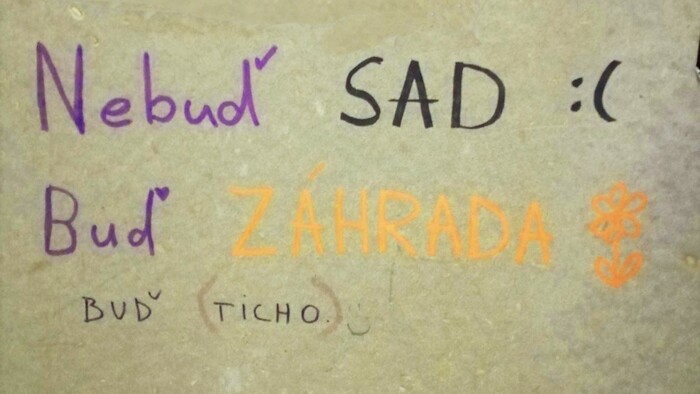 Nebuď SAD :(
Buď ZÁHRADA
BUĎ (TICHO.)